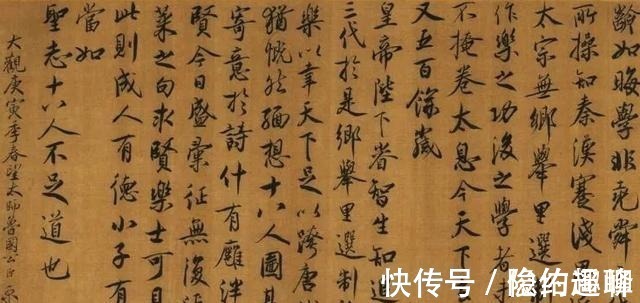 齡如晦學非堯舜
所操知秦漢蹇淺
太宗無鄉舉里選
作樂之功後之學者
不掩卷太息今天下
又五百餘歲
皇帝陛下睿智生知
三代於是鄉舉里選制
樂以韋天下足以跨唐
猶慨然緬想十八人圖其
寄意於詩什有廱泮
賢今日盛彙征無復
菜之句求賢樂士可見
此則成人有德小子有
當如
聖志十八人不足道也
大觀庚寅季春望太師魯國公臣京
快传号 /